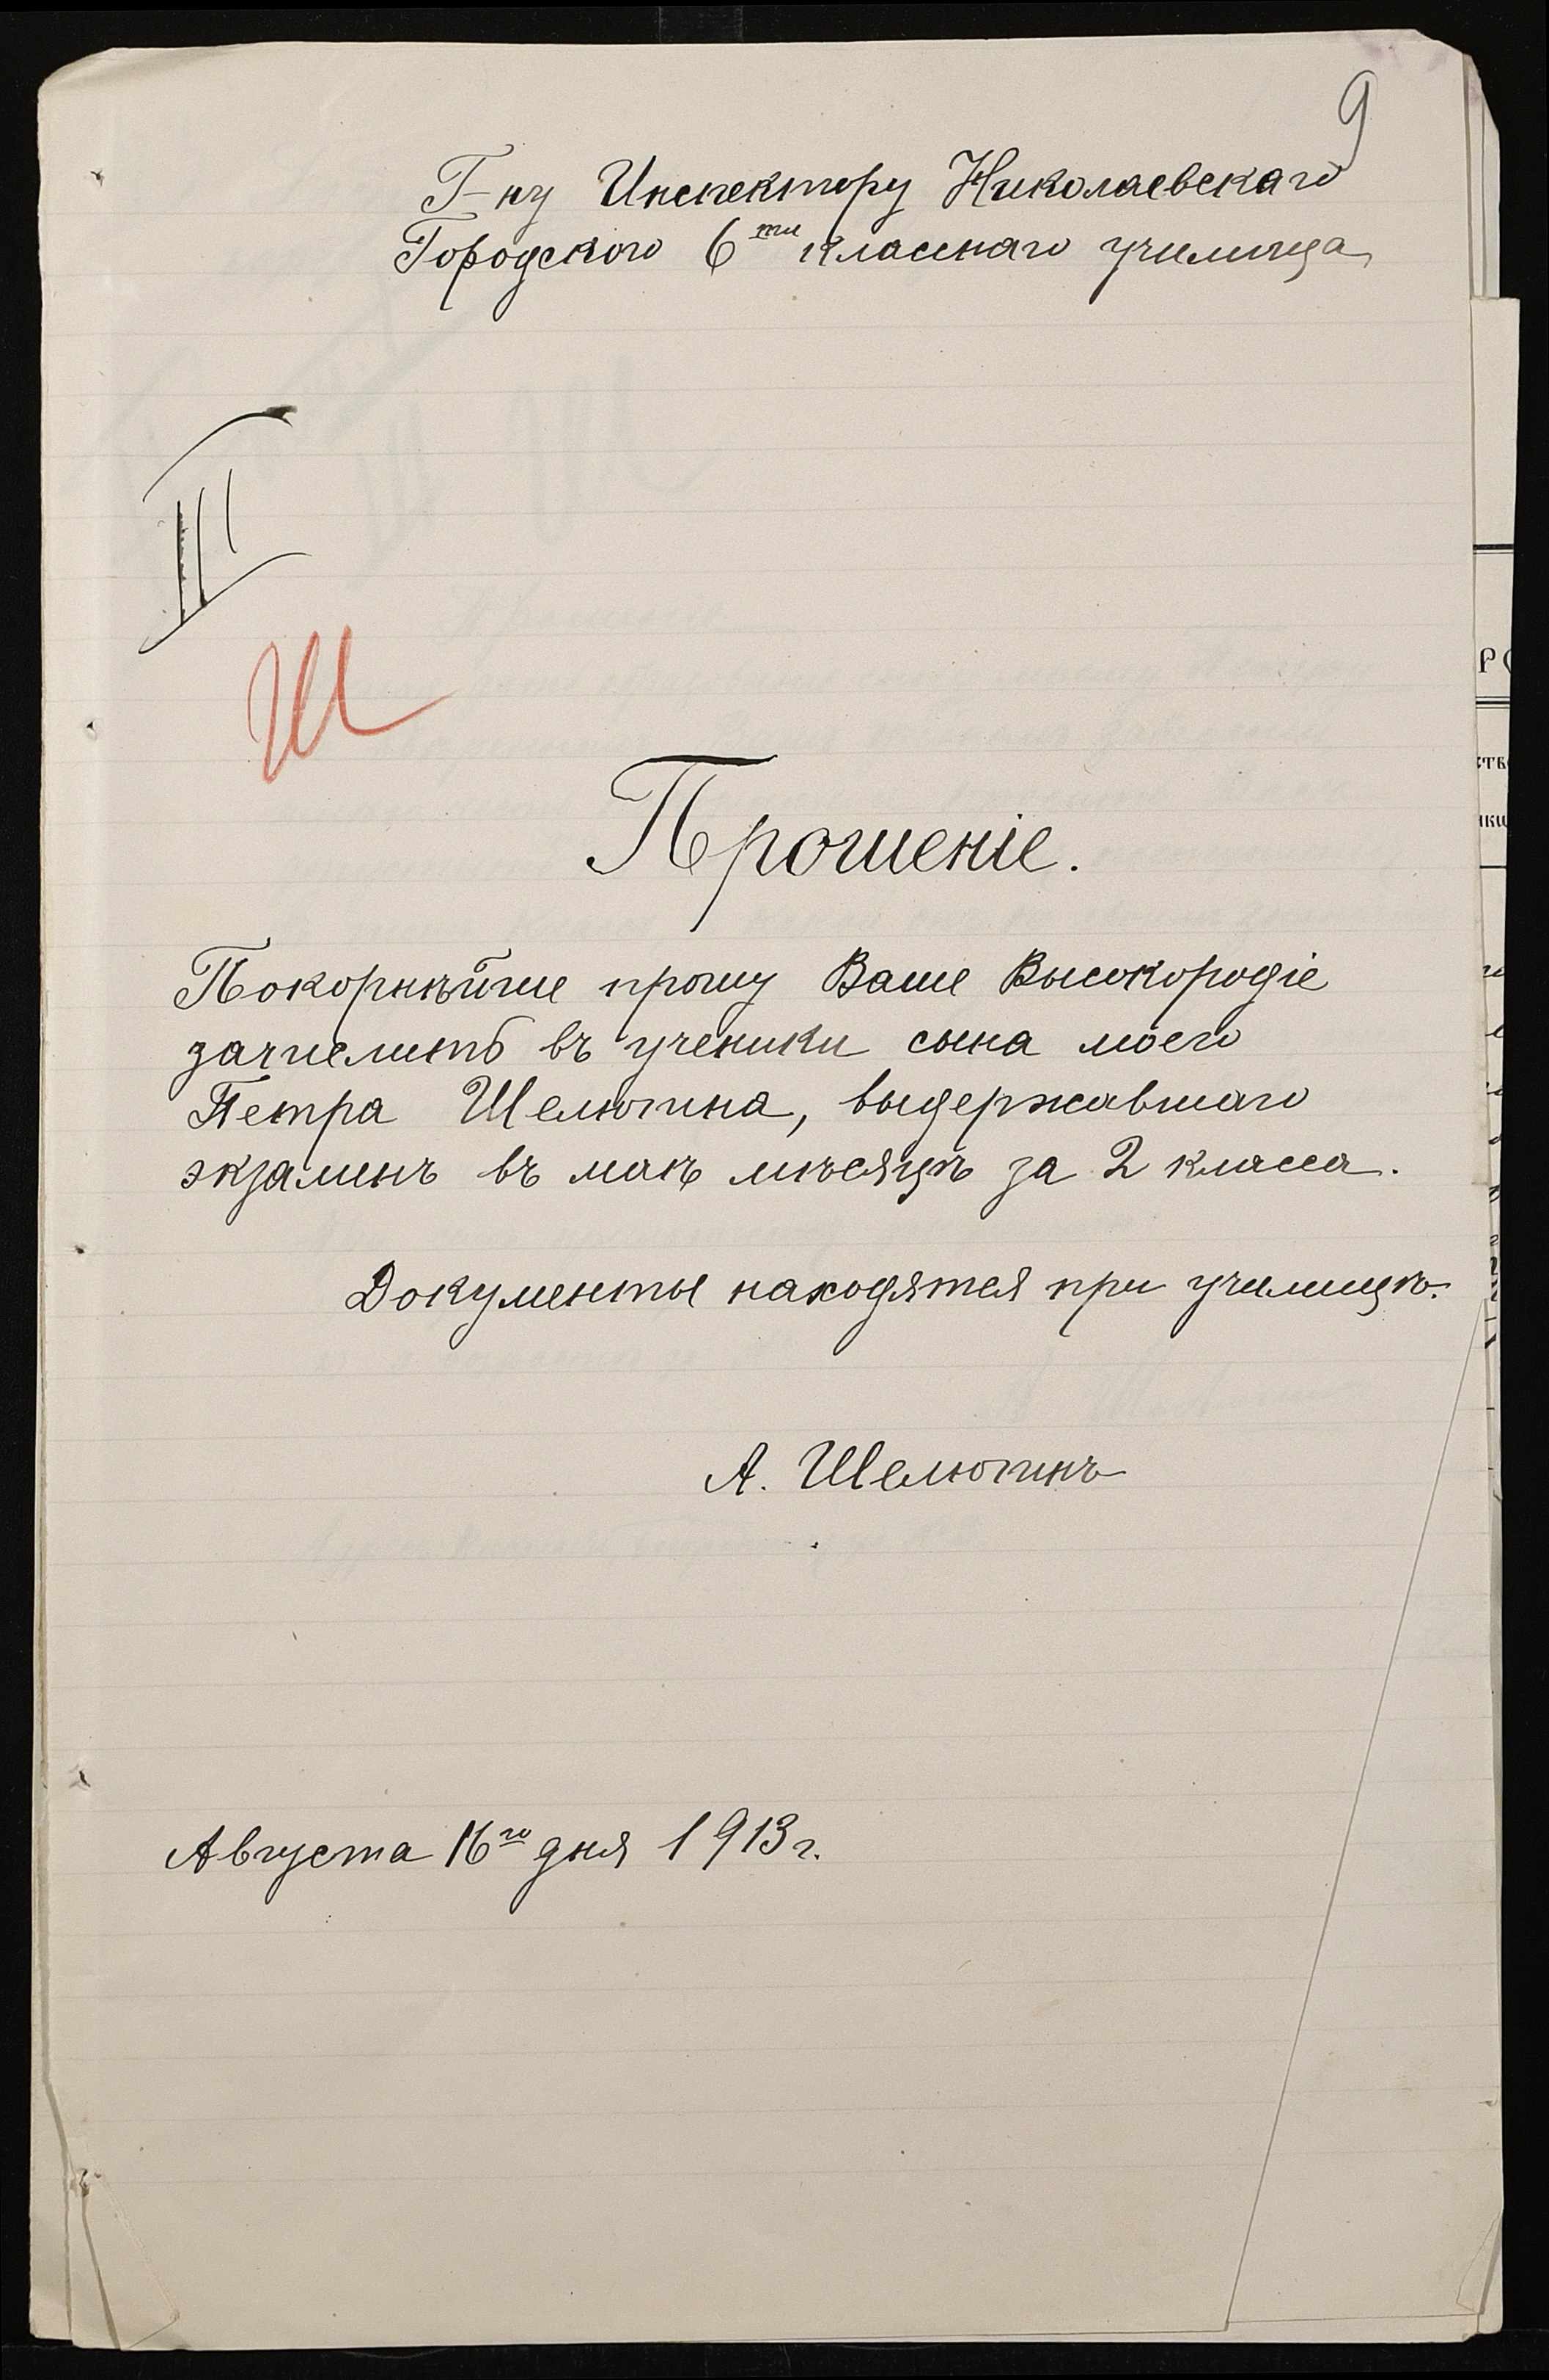 9
Г-ну Инспектору Николаевскаго
Городского 6ти класснаго училища
III
Ш
Прошеніе.
Покорнѣйше прошу Ваше Высокородіе
зачислить въ ученики сына моего
Петра Шелюгина, выдержавшаго
экзаменъ въ маѣ мѣсяцѣ за 2 класса.
Документы находятся при училищѣ.
А. Шелюгинъ
Августа 16го дня 1913 г.